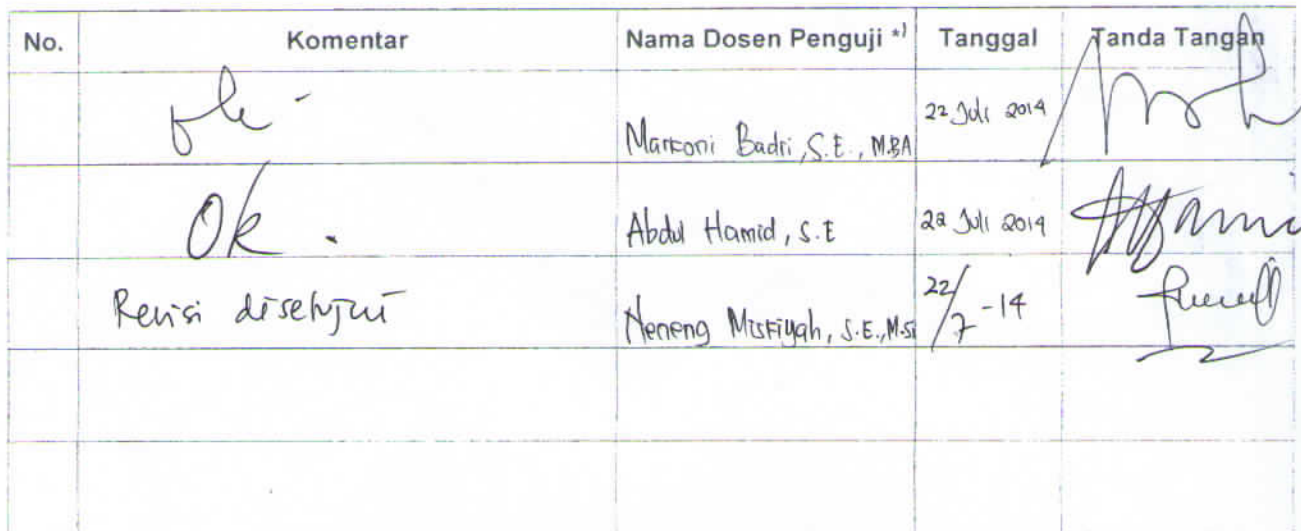 No. Komentar Nama Dosen Penguji *) Tanggal Tanda Tangan
Markoni Badri, S.E., M.BA 22 Juli 2014
Ok. Abdul Hamid, S.E 22 Juli 2014
Revisi disetujui Neneng Miskiyah, S.E., M.Si 22/7 -14